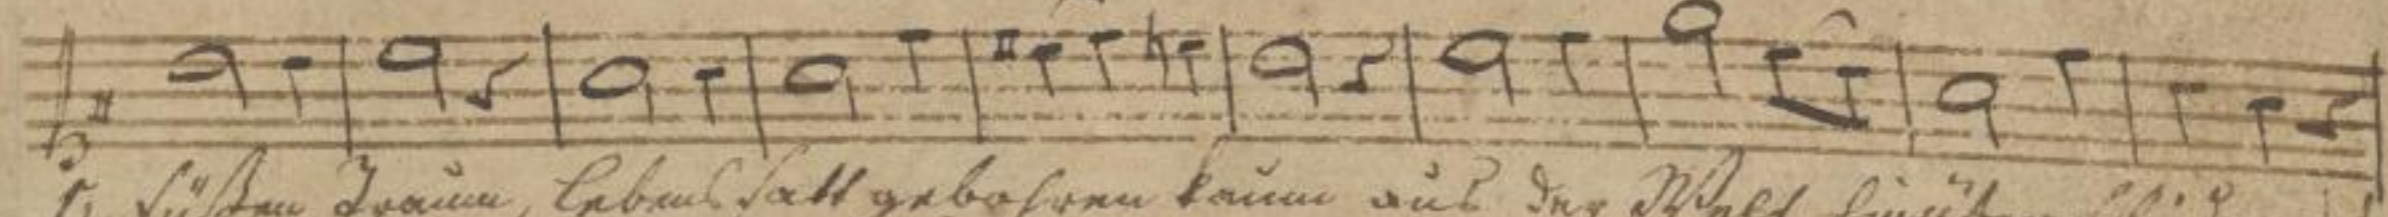 süßen Traum, lebens satt gebohren kaum aus der Welt hinüber